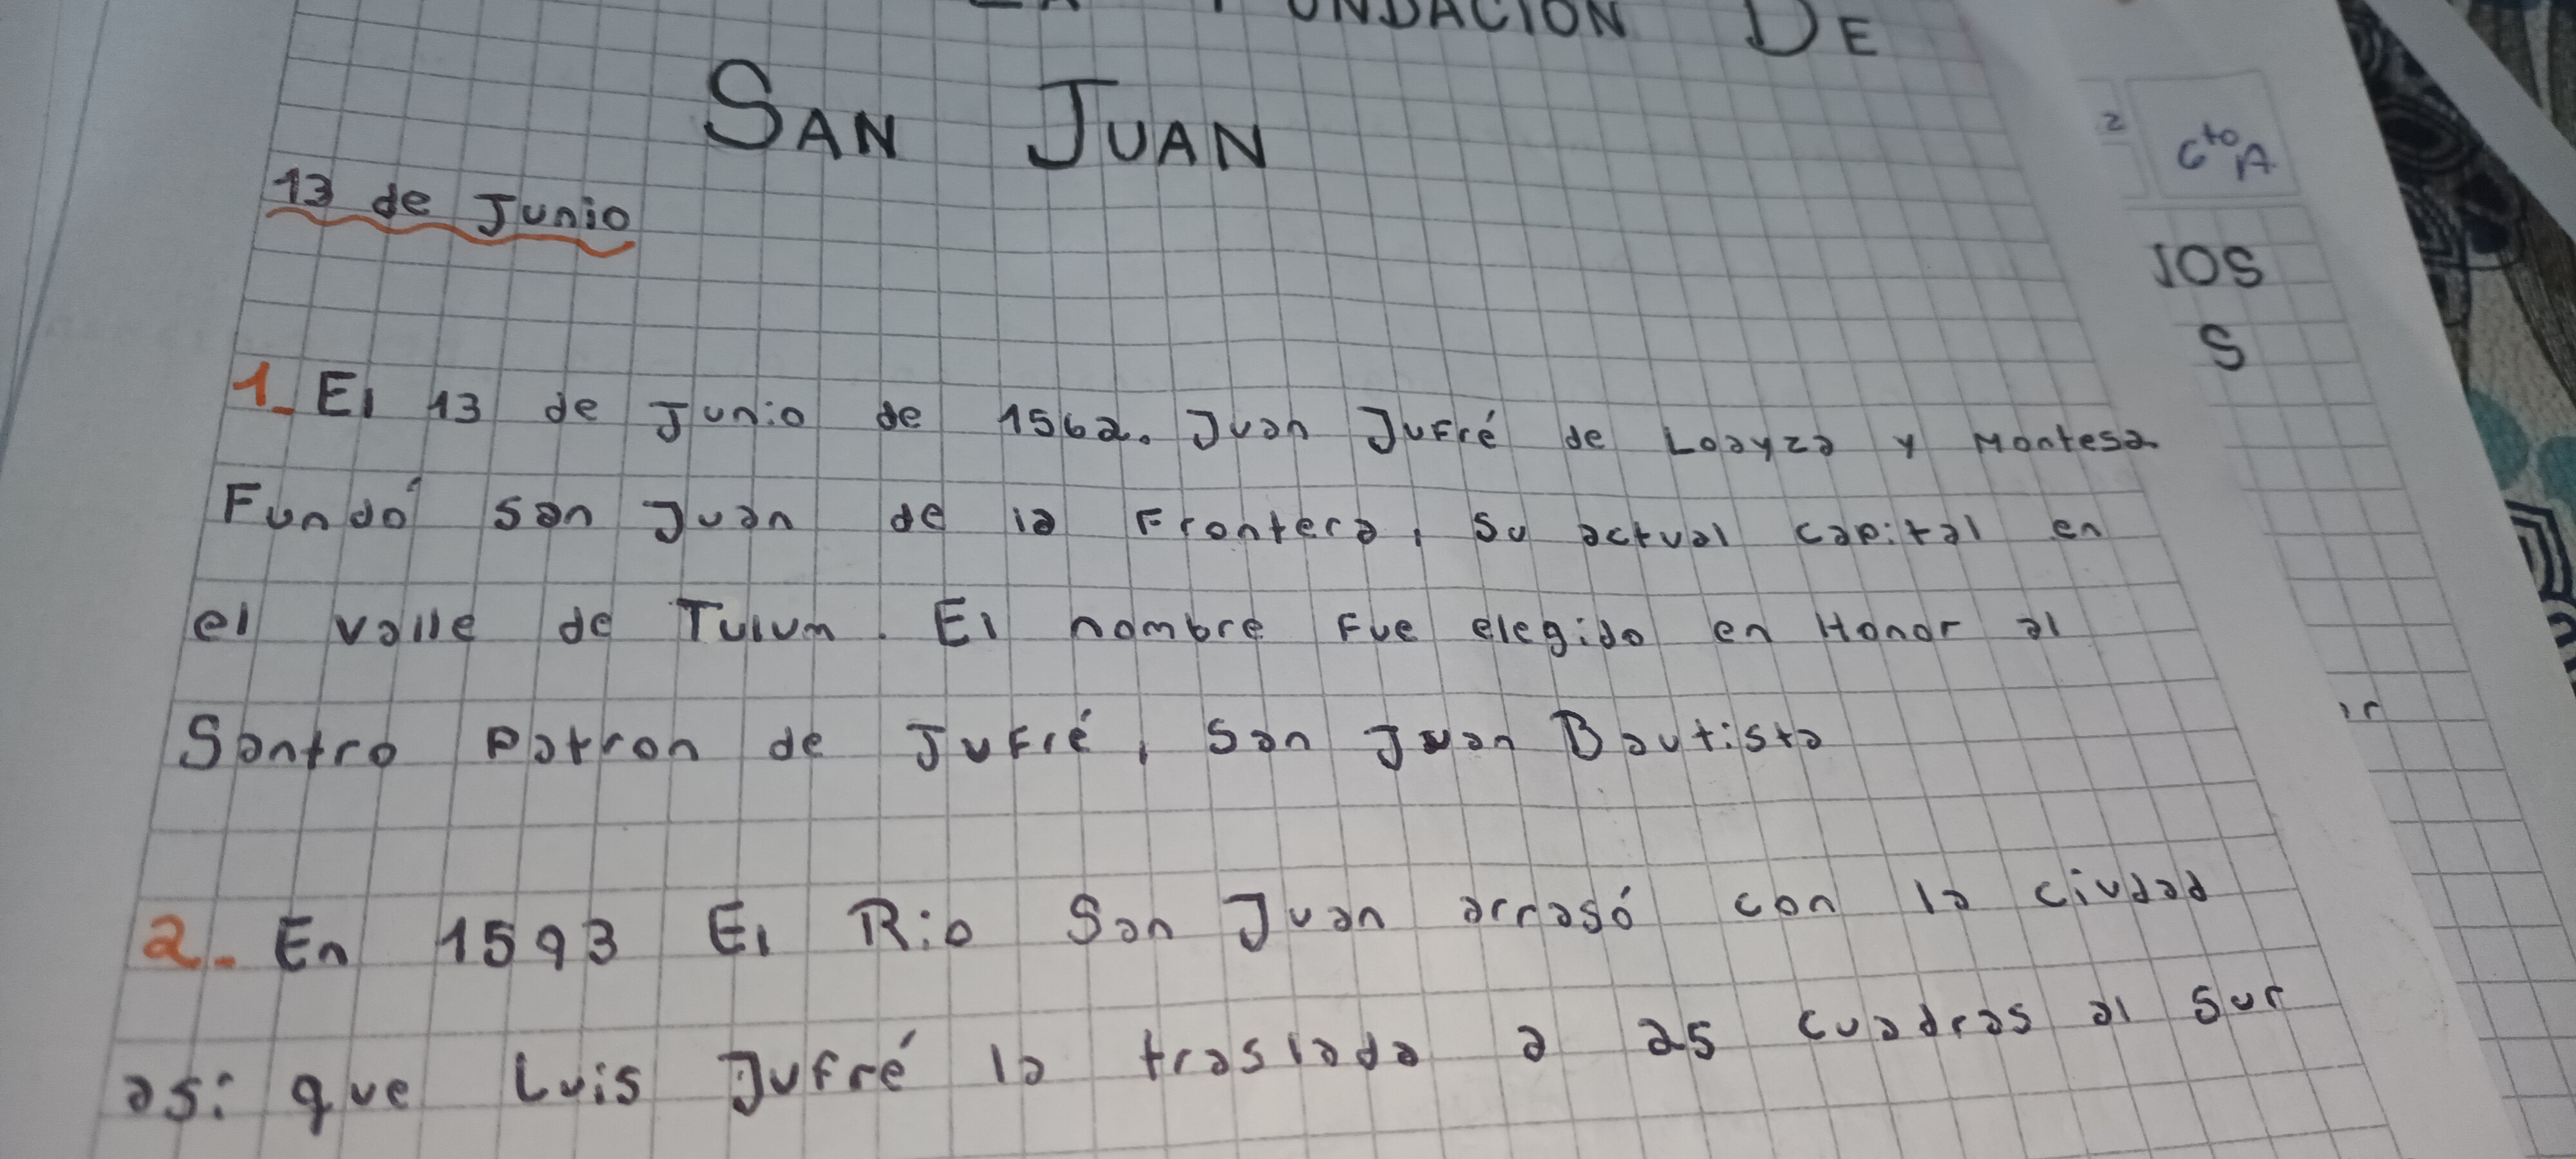 LA FUNDACION DE
SAN JUAN
13 de Junio
1. El 13 de Junio de 1562. Juan Jufré de Loayza y Montesa
Fundó San Juan de la Frontera, su actual capital en
el valle de Tulum. El nombre Fue elegido en Honor al
Santro Patron de Jufré, San Juan Bautista
2. En 1593 El Rio San Juan arrasó con la ciudad
asi que Luis Jufré la traslada a 25 cuadras al sur
2
6to A
IOS
S